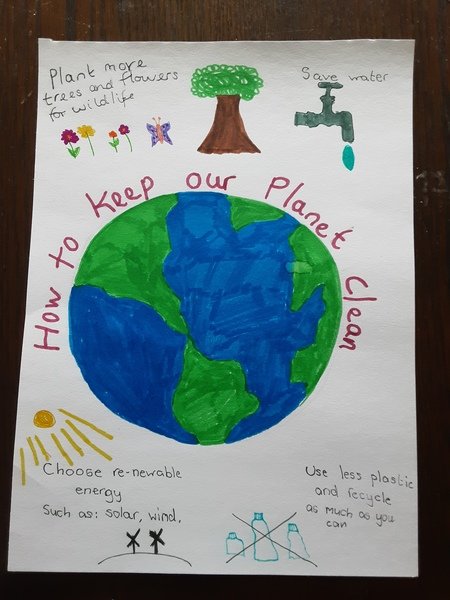 Plant more
trees and flowers
for wildlife
Save water
How to Keep our Planet Clean
Choose re-newable
energy
Such as: solar, wind,
Use less plastic
and recycle
as much as you
can